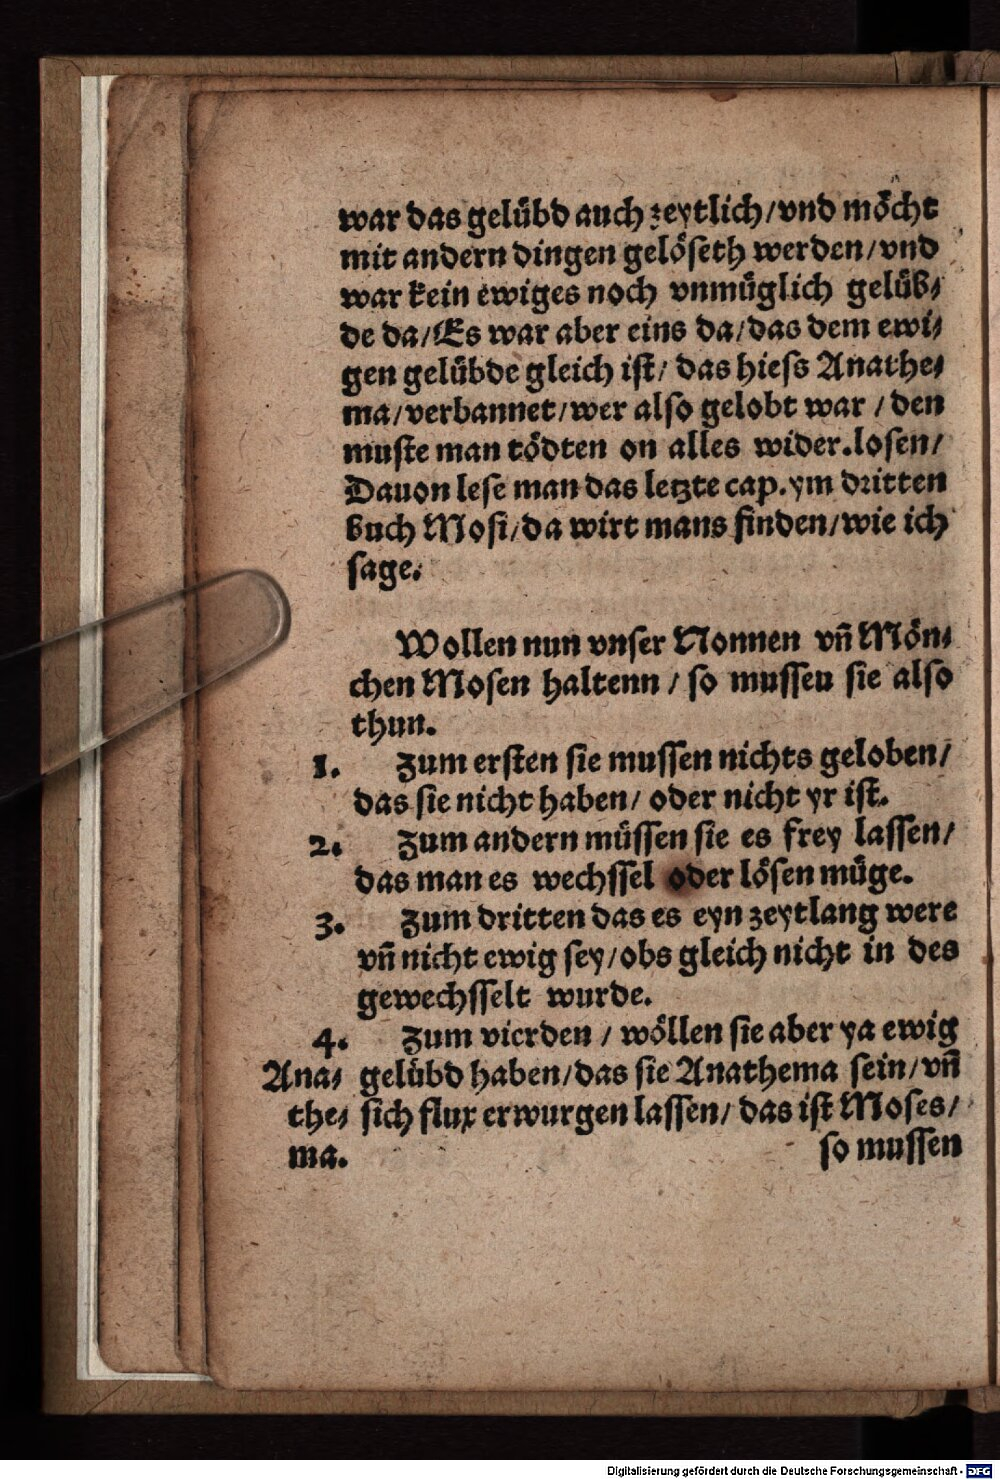 war das gelübd auch zeytlich/vnd möcht
mit andern dingen gelöseth werden/vnd
war kein ewiges noch vnmüglich gelüb⸗
de da/Es war aber eins da/das dem ewi⸗
gen gelübde gleich ist/ das hiess Anathe⸗
ma/verbannet/wer also gelobt war / den
muste man tödten on alles wider.losen/
Dauon lese man das letzte cap.ym dritten
buch Mosi/da wirt mans finden/wie ich
sage.
Wollen nun vnser Nonnen vñ Mön⸗
chen Mosen haltenn / so mussen sie also
thun.
1. Zum ersten sie mussen nichts geloben/
das sie nicht haben/ oder nicht yr ist.
2. Zum andern müssen sie es frey lassen/
das man es wechssel oder lösen müge.
3. Zum dritten das es eyn zeytlang were
vñ nicht ewig sey/obs gleich nicht in des
gewechsselt wurde.
4. Zum vierden / wöllen sie aber ya ewig
Ana⸗ gelübd haben/das sie Anathema sein/vñ
the⸗ sich flux erwurgen lassen/ das ist Moses/
ma. so mussen
Digitalisierung gefördert durch die Deutsche Forschungsgemeinschaft - DFG